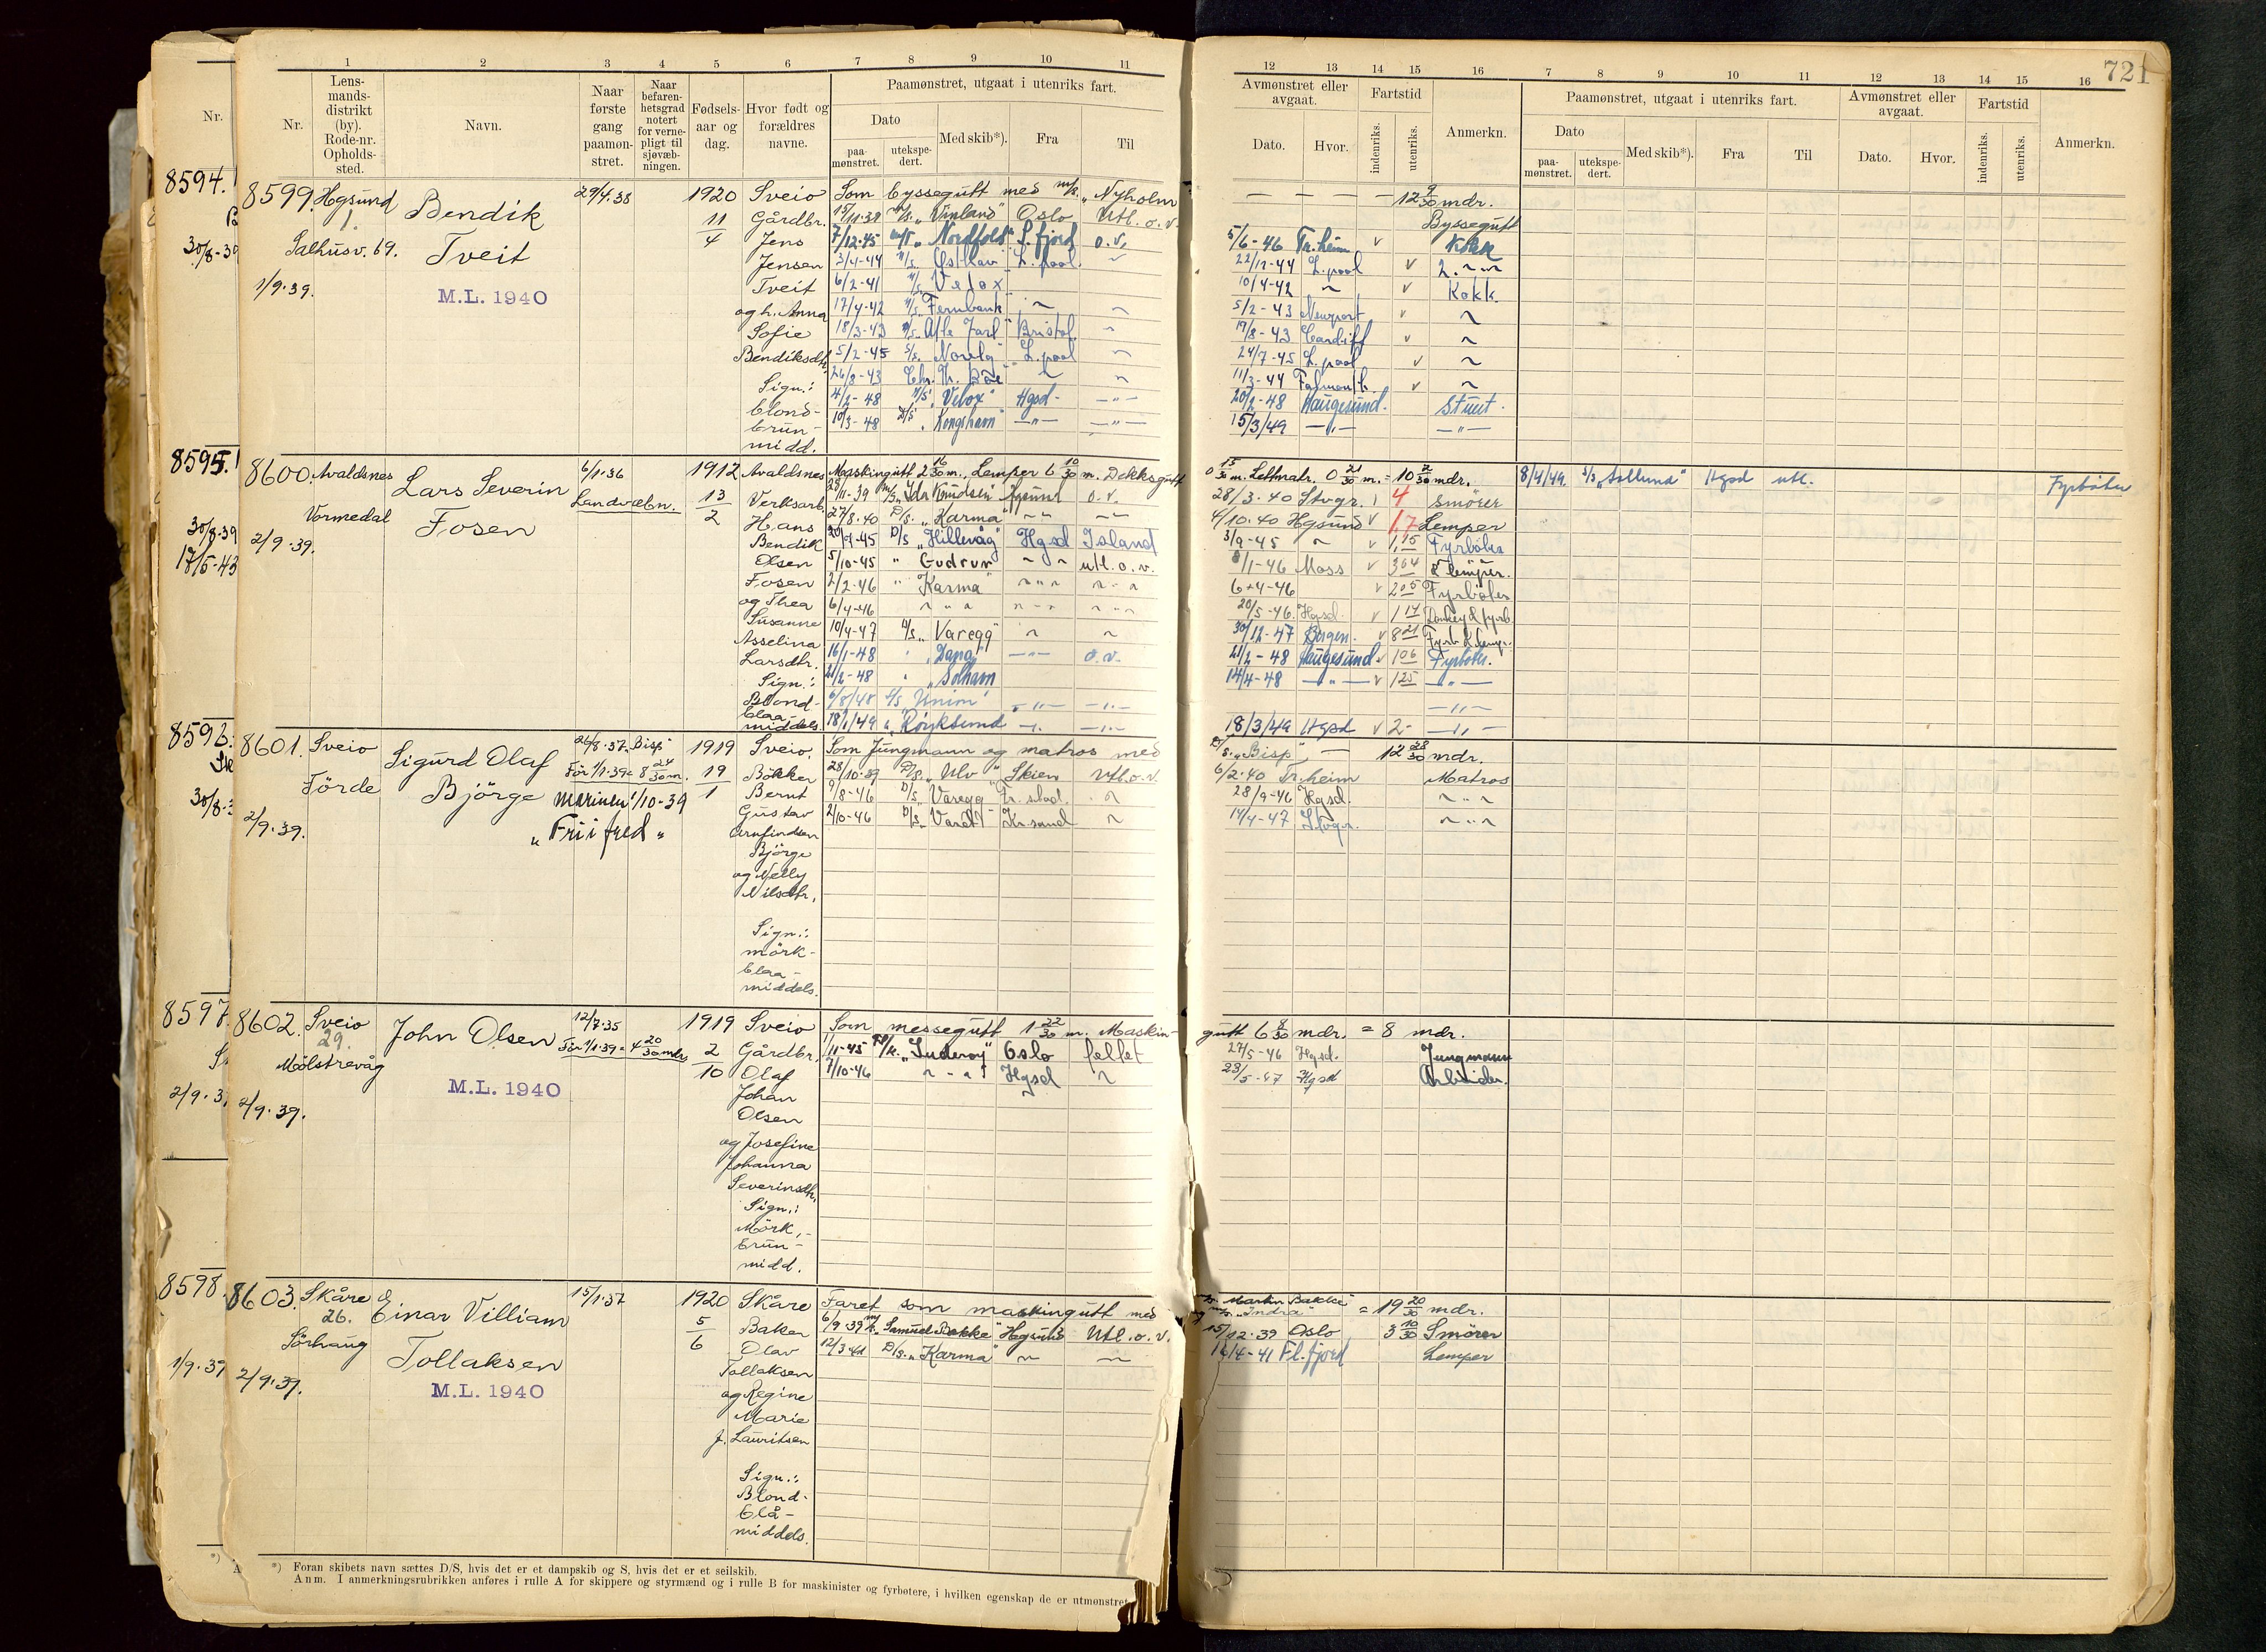 721
1 2 3 4 5 6 7 8 9 10 11
12 13 14 15 16 7 8 9 10 11 12 13 14 15 16
Nr.
Nr.
Lens-
mands-
distrikt
(by).
Rode-nr.
Opholds-
sted.
Navn.
Naar
første
gang
paamøn-
stret.
Naar
befaren-
hetsgrad
notert
for verne-
pligt til
sjøvæb-
ningen.
Fødsels-
aar og
dag.
Hvor født og
forældres
navne.
Paamønstret, utgaat i utenriks fart.
Dato
paa-
mønstret.
utekspe-
dert.
Med skib*).
Fra
Til
Avmønstret eller
avgaat.
Dato.
Hvor.
Fartstid
indenriks.
utenriks.
Anmerkn.
Paamønstret, utgaat i utenriks fart.
Dato
paa-
mønstret.
utekspe-
dert.
Med skib*).
Fra
Til
Avmønstret eller
avgaat.
Dato.
Hvor.
Fartstid
indenriks.
utenriks.
Anmerkn.
8594.
30/8-39
8595.
30/8.39
17/5-43
8596.
30/8-3
8597.
2/9.3
8598.
1/9.39
8599. Hgsund
1.
Salhusv. 69.
1/9.39.
Bendik
Tveit
M.L. 1940
29/4.38
1920
11
4
Sveio
Gårdbr.
Jens
Jensen
Tveit
og h. Anna
Sofie
Bendiksdtr.
Sign.:
blond-
brun-
midd.
Som byssegutt med m/s. "Nyholm
15/11.38 m/s. "Vinland" Oslo Utl. o. v.
7/12.45 m/T "Nordfold" S. fjord o.v.
3/4-44 L. pool
6/2-41 Velox
17/4-42 Fernbank
18/3-43 Atle Jarl Bristol
5/2-45 Norelg L. pool
26/8-43
4/2-48 "Velox" Hgsd
10/3-48 D/S "Kongshavn"
12 9/30 mdr.
Byssegutt
5/6-46 Tr.heim v Kokk
22/12-44 L. pool v
10/4-42 v Kokk.
5/2-43 Newport v
19/8-43 Cardiff v
24/7-45 L. pool v
11/3-44 Falmouth v
20/2-48 Haugesund. Stuet.
15/3/49
8600. Avaldsnes
Vormedal
2/9.39.
Lars Severin
Fosen
6/1.36
Landvæbn.
1912
13
2
Avaldsnes
Verksarb.
Hans
Bendik
Olsen
Fosen
og Thea
Susanne
Asselina
Larsdtr.
Sign.:
Blond-
blaa-
middels.
Maskingutt 2 16/30 m., Lemper 6 10/30 m. Dekksgutt
28/11-39 m/s. "Ida Knudsen" Hgsund o.v.
27/8.40 D/s. "Karma"
20/7-45 D/S "Hillevåg" Hgsd Island
5/10-45 " Gudrun utl. o. v.
2/2-46 " "Karma"
6/4-46
10/4-47 D/S "Varegg"
16/1-48 "Dana" o.v.
21/2-48 "Solhavn
6/8/48 S/S Union
18/1/49 "Røyksund
0 13/30 m. Lettmatr. 0 21/30 m. = 10 2/30 mdr.
28/3.40 Stvgr. 4 smører
4/10.40 Hgsund v 1,7 Lemper
3/9-45 v 1,15 Fyrbøter
8/1-46 Moss v 3 04 lemper.
6-4-46 v 2 05 Fyrbøter
20/5-46. Hgsd. v 1 14 Donkey & fyrb.
30/12-47 Bergen. v 8 21 Fyrb & lempr.
21/2-48 Haugesund v 1 06 Fyrbøter.
14/4-48 v 1 25
18/3/49 Hgsd v 2-
8/4/49. Hgsd utl. Fyrbøter
8601. Sveio
Førde
2/9.39.
Sigurd Olaf
Bjørge
26/8.37 "Bisp"
Før 1/1.39 = 8 24/30 m.
marinen 1/10-39
"Fritjred"
1919
19
1
Sveio.
Bøkker
Bernt
Gustav
Arnfindsen
Bjørge
og Nelly
Nilsdtr.
Sign.:
mörk-
blaa-
middels.
Som Jungmann og matros med
28/10.39 D/s. "Ulv" Skien Utl.o.v.
9/8-46 D/S "Varegg" Fr. stad.
2/10-46 D/S "Vard" Kr.sand
D/s. "Bisp" 12 28/30 mdr.
6/2.40 Tr.heim Matros
28/9-46 Hgsd.
14/4-47 Stvgr.
8602. Sveio
29.
Mølstrevåg
2/9.39.
John Olsen
M.L. 1940
12/7.35
Før 1/1.39 = 4 20/30 mdr
1919
2
10
Sveio
Gårdbr.
Olaf
Johan
Olsen
og Josefine
Johanna
Severinsdtr.
Sign.:
Mörk,-
brun-
midd.
Som messegutt 1 22/30 m. Maskin-
1/11-45 "Suderøy" Oslo fellet
7/10-46 Hgsd
gutt 6 8/30 mdr. = 8 mdr.
27/5-46 Hgsd. Jungmann
23/5-47 Hgsd Arbeider.
8603. Skåre
26.
Sörhaug
2/9.39.
Einar Villiam
Tollaksen
M.L. 1940
15/1.37
1920
5
6
Skåre
Baker
Olav
Tollaksen
og Regine
Marie
f. Lauritsen
Sign.:
Blond-
blå-
middels.
Faret som maskingutt med
6/9.39 m/s. "Samuel Bakke" Hgsund Utl. o. v.
12/3-41 D/s. "Karma"
"Martin Bakke"
"Indra" = 19 20/30 mdr.
15/12.39 Oslo 3 10/30 Smører
16/4-41 Fl. fjord Lemper
*) Foran skibets navn sættes D/S, hvis det er et dampskib og S, hvis det er et seilskib.
Anm. I anmerkningsrubrikken anføres i rulle A for skippere og styrmænd og i rulle B for maskinister og fyrbøtere, i hvilken egenskap de er utmønstret